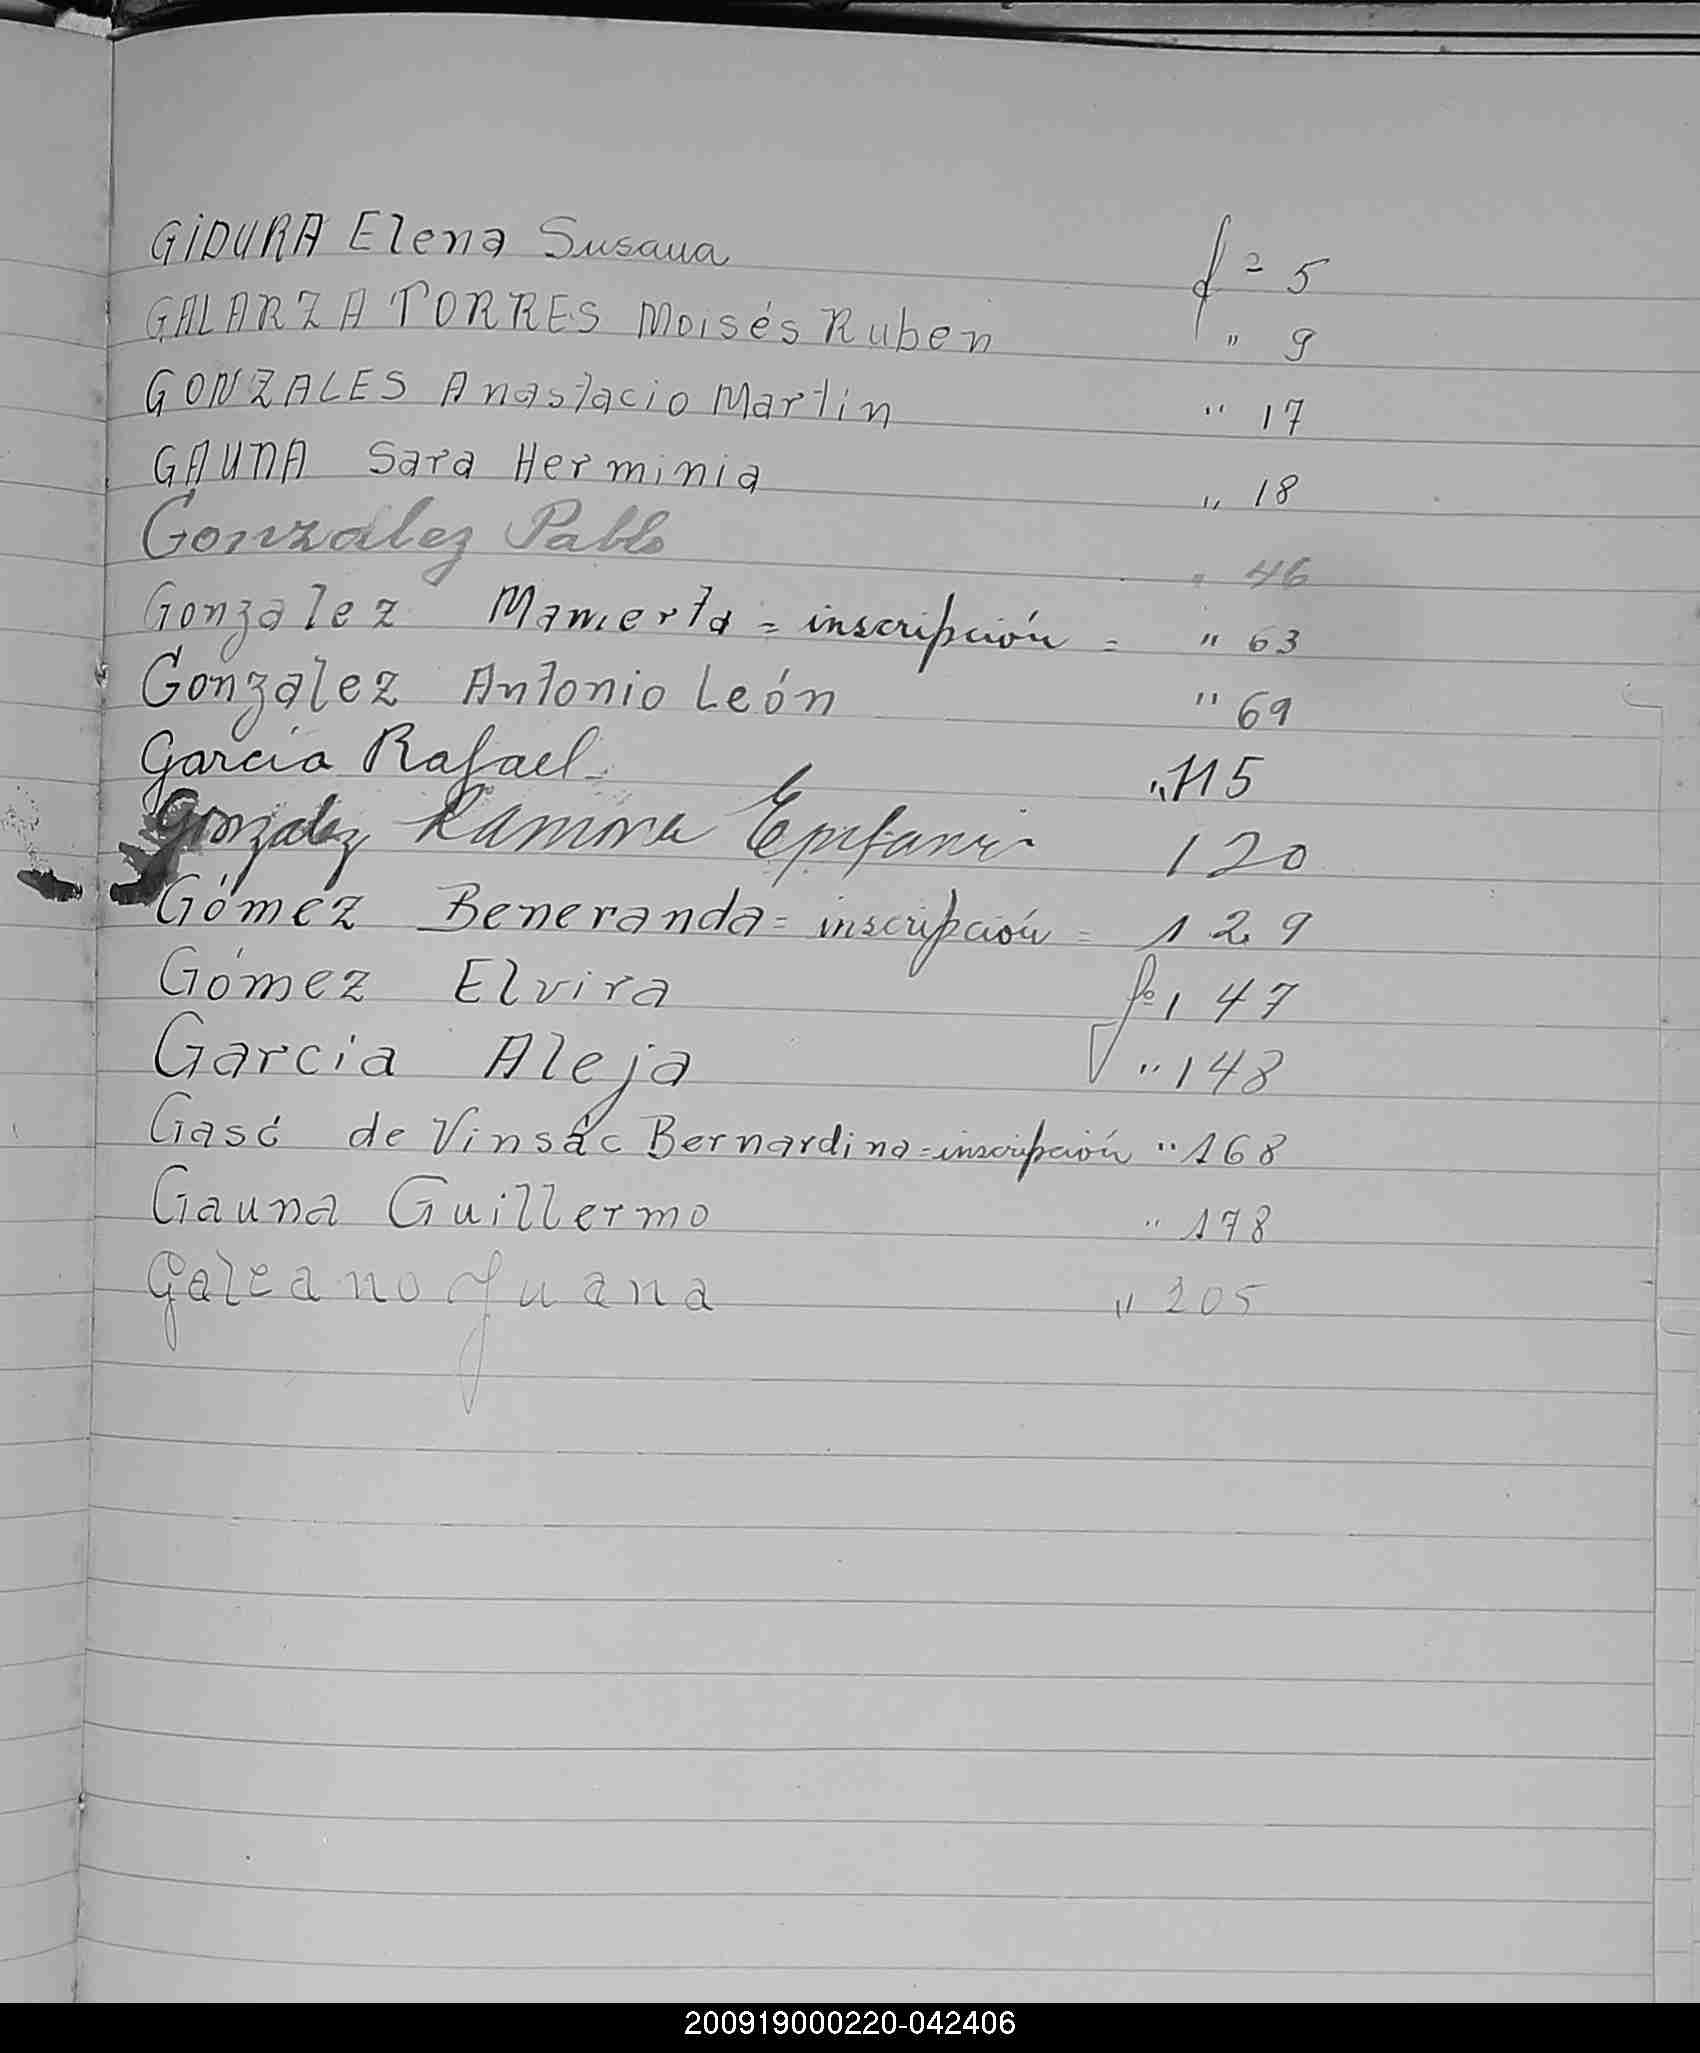 GIDURA Elena Susana fº 5
GALARZA TORRES Moisés Ruben " 9
GONZALES Anastacio Martin " 17
GAUNA Sara Herminia " 18
Gonzalez Pablo " 46
Gonzalez Mamerta = inscripción = " 63
Gonzalez Antonio León " 69
Garcia Rafael " 115
Gonzalez Ramona Epifania 120
Gómez Beneranda = inscripción = 129
Gómez Elvira fº 147
Garcia Aleja " 148
Gasó de Vinsác Bernardina = inscripción " 168
Gauna Guillermo " 178
Galeano Juana " 205
200919000220-042406